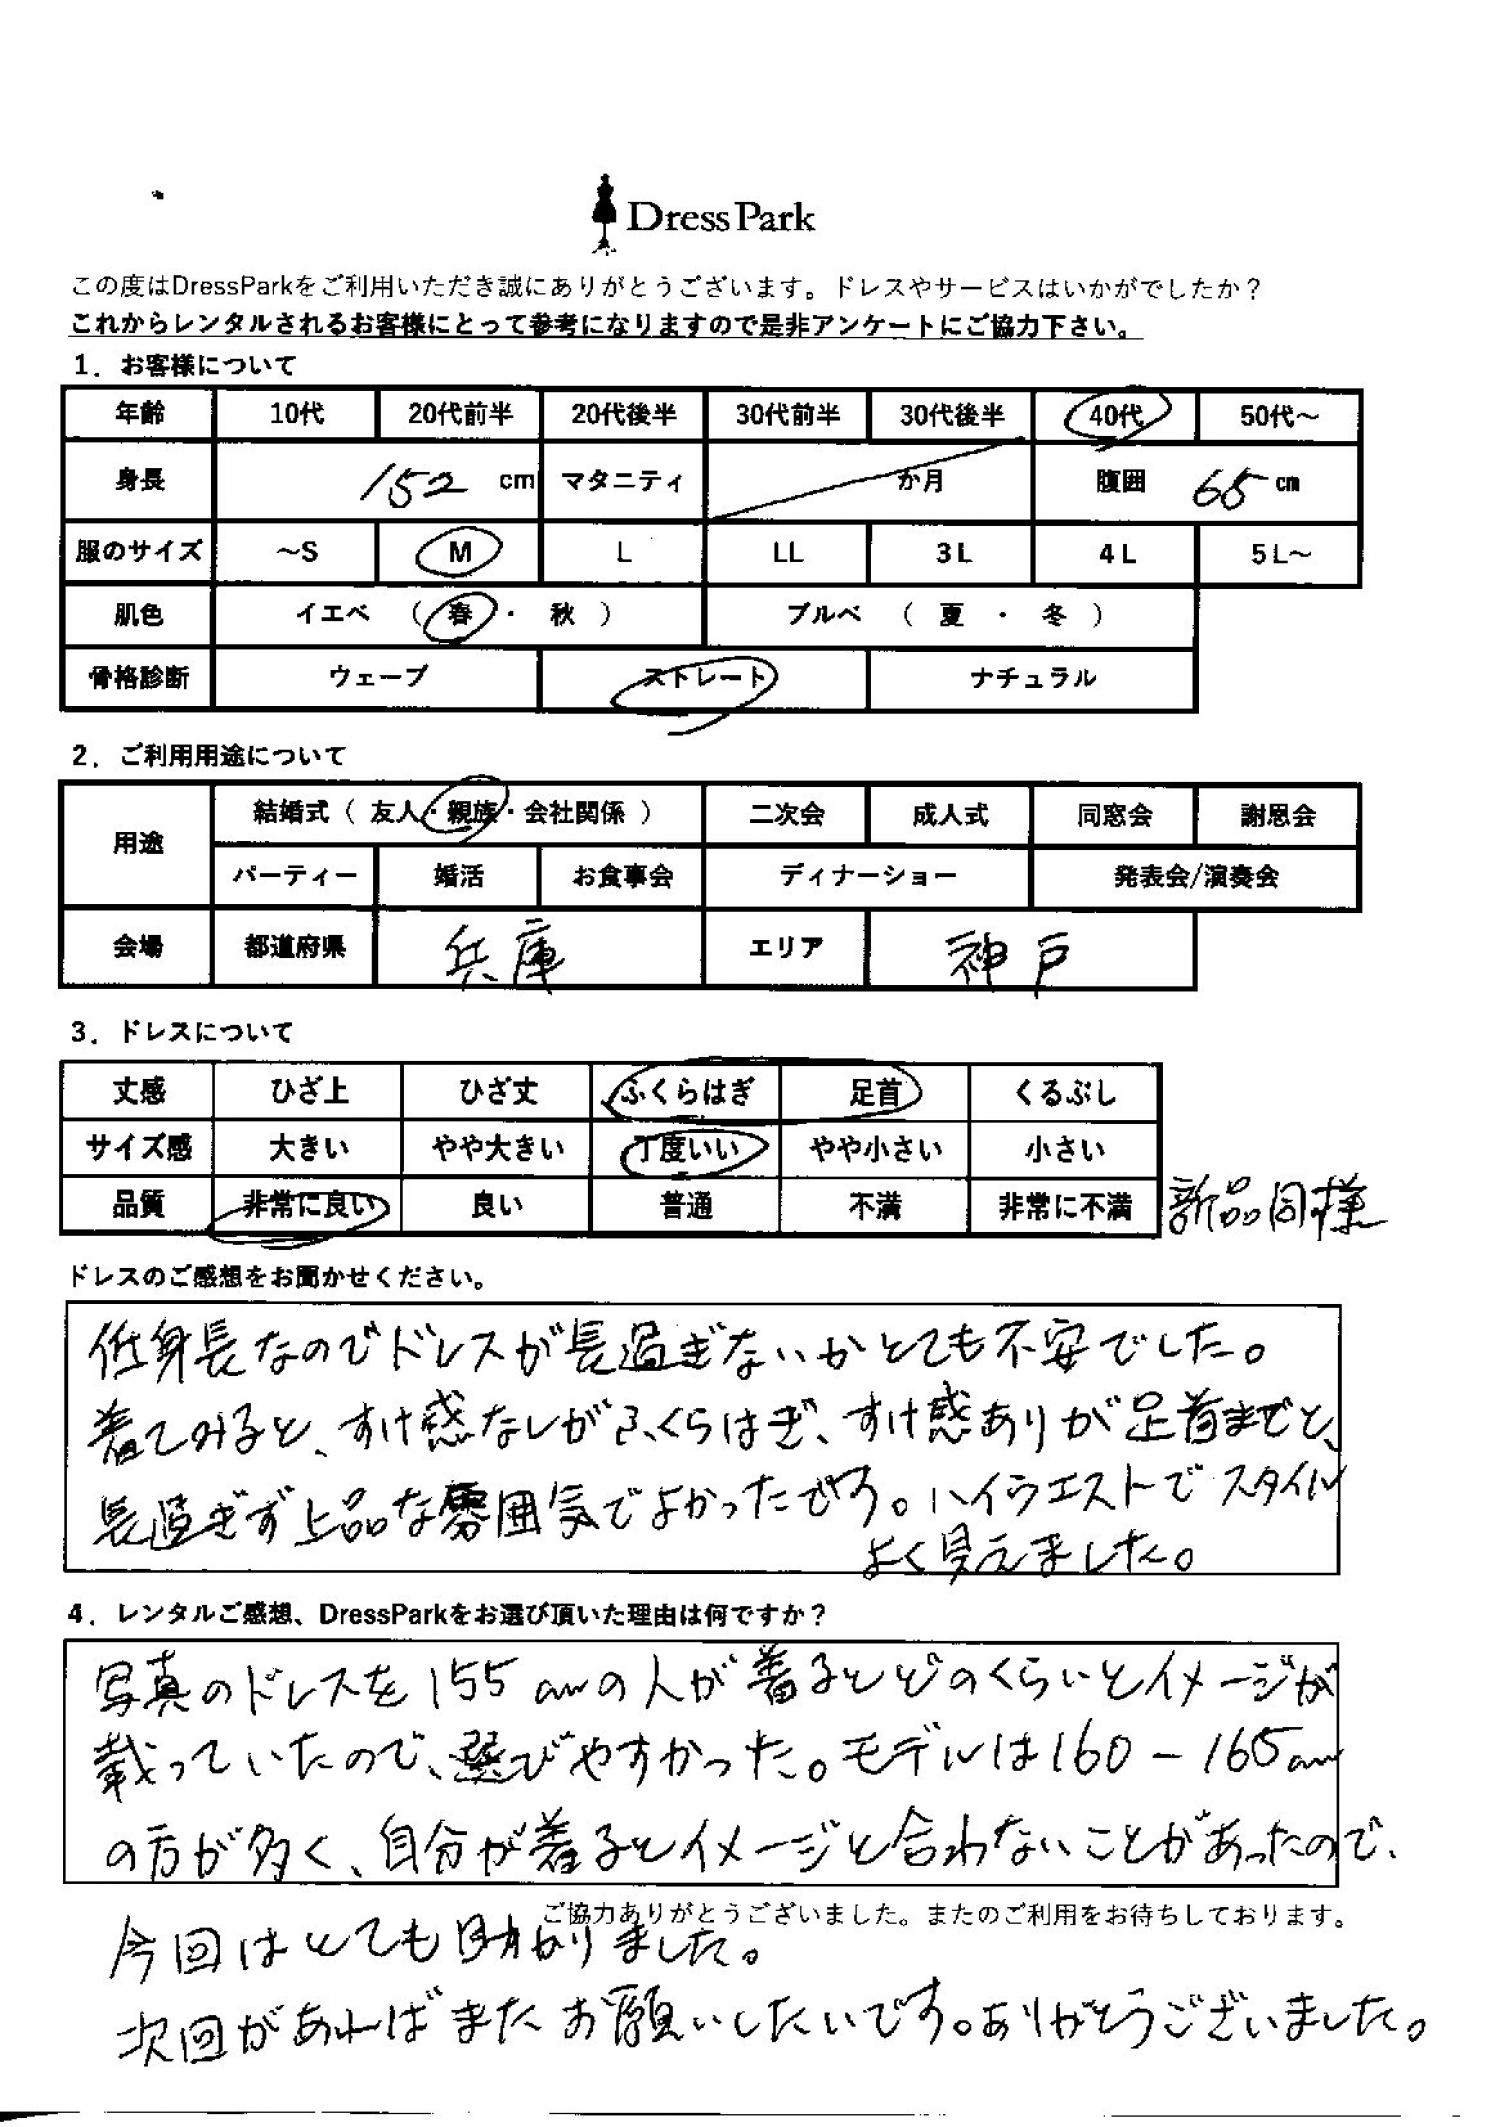 DressPark
この度はDressParkをご利用いただき誠にありがとうございます。ドレスやサービスはいかがでしたか？
これからレンタルされるお客様にとって参考になりますので是非アンケートにご協力下さい。
1．お客様について
年齢 10代 20代前半 20代後半 30代前半 30代後半 40代 50代～
身長 152 cm マタニティ か月 腹囲 65 cm
服のサイズ ～S M L LL 3L 4L 5L～
肌色 イエベ （ 春 ・ 秋 ） ブルベ （ 夏 ・ 冬 ）
骨格診断 ウェーブ ストレート ナチュラル
2．ご利用用途について
用途 結婚式（ 友人・親族・会社関係 ） 二次会 成人式 同窓会 謝恩会
パーティー 婚活 お食事会 ディナーショー 発表会/演奏会
会場 都道府県 兵庫 エリア 神戸
3．ドレスについて
丈感 ひざ上 ひざ丈 ふくらはぎ 足首 くるぶし
サイズ感 大きい やや大きい 丁度いい やや小さい 小さい
品質 非常に良い 良い 普通 不満 非常に不満 新品同様
ドレスのご感想をお聞かせください。
低身長なのでドレスが長過ぎないかとても不安でした。
着てみると、すけ感なしがふくらはぎ、すけ感ありが足首までと、
長過ぎず上品な雰囲気でよかったです。ハイウエストでスタイル
よく見えました。
4．レンタルご感想、DressParkをお選び頂いた理由は何ですか？
写真のドレスを155cmの人が着るとどのくらいとイメージが
載っていたので、選びやすかった。モデルは160－165cm
の方が多く、自分が着るとイメージと合わないことがあったので、
ご協力ありがとうございました。またのご利用をお待ちしております。
今回はとても助かりました。
次回があればまたお願いしたいです。ありがとうございました。